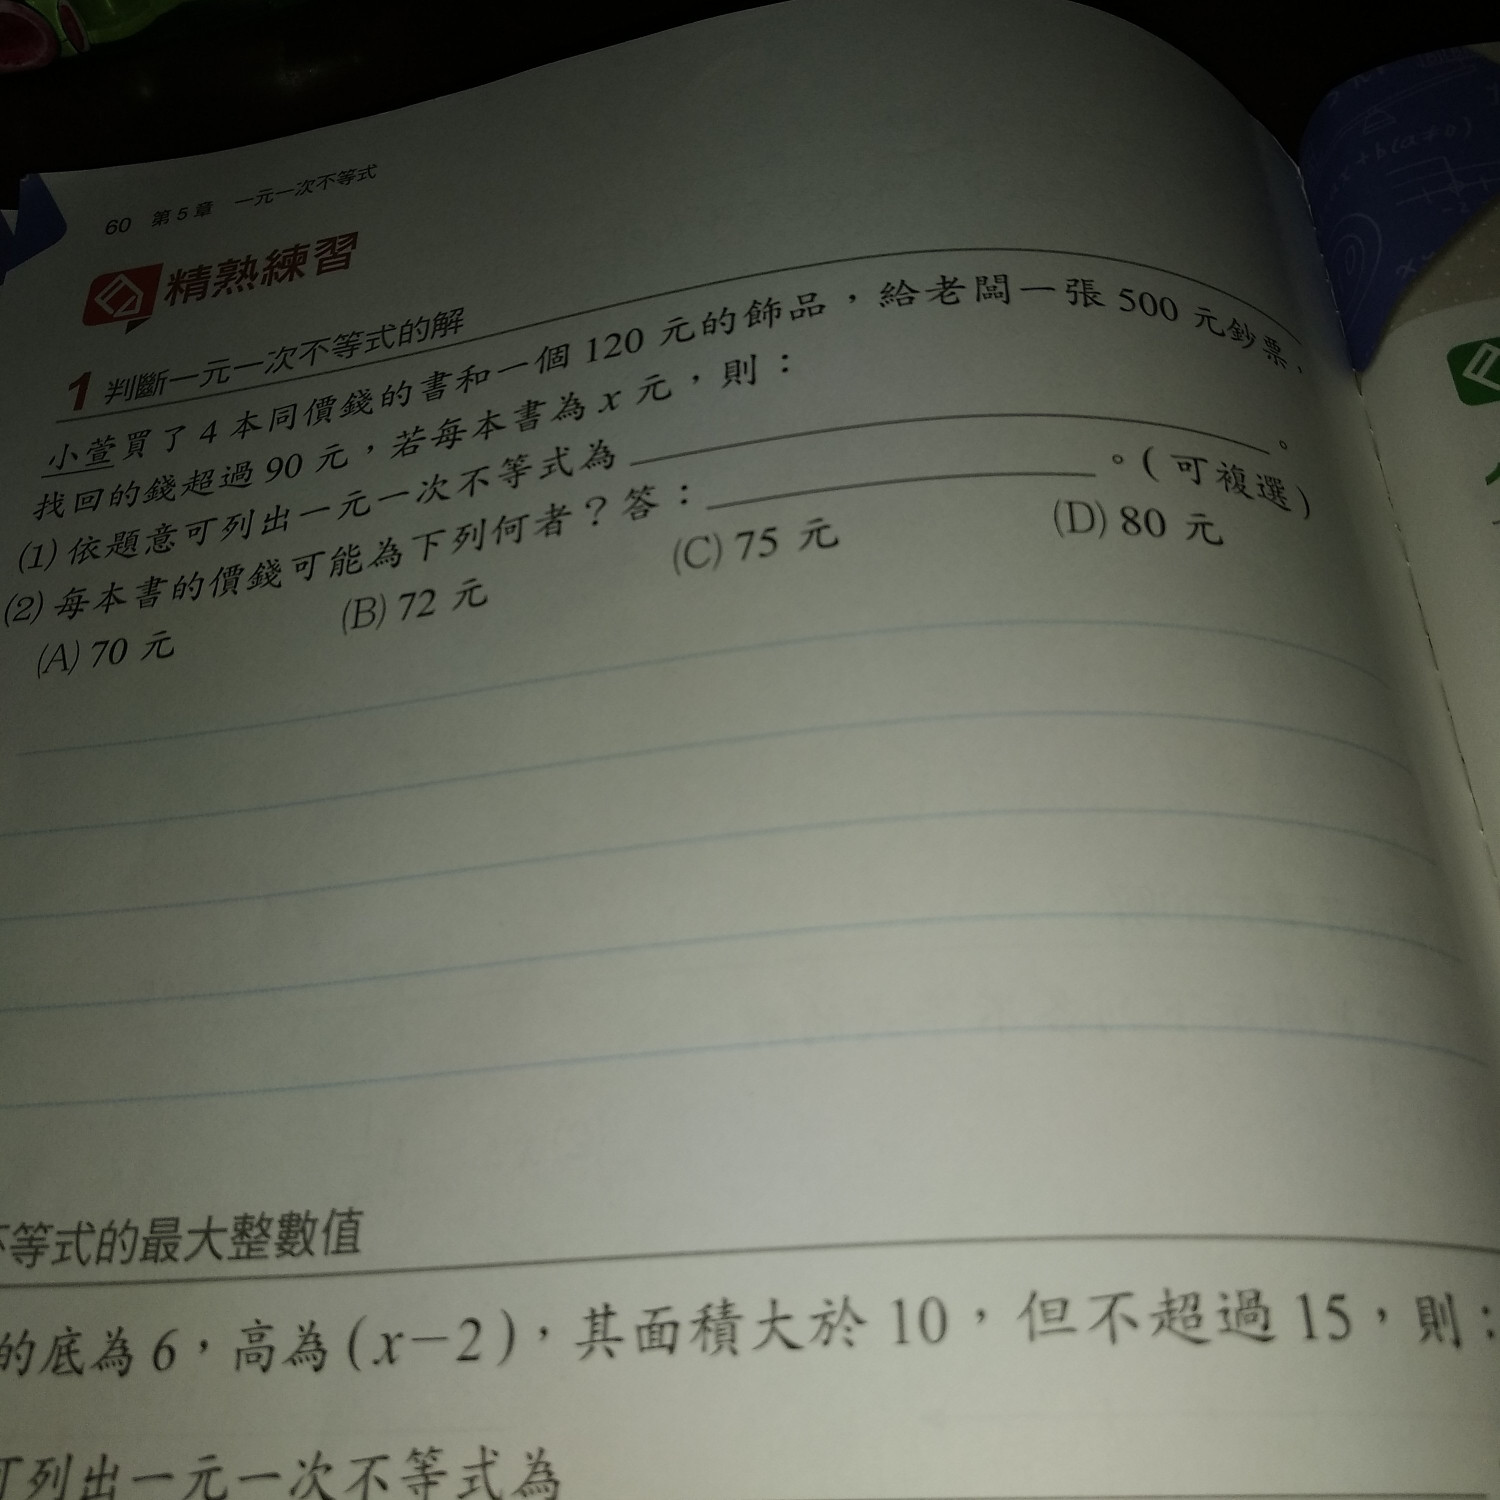 60 第5章 一元一次不等式
精熟練習
1 判斷一元一次不等式的解
小萱買了4本同價錢的書和一個120元的飾品，給老闆一張500元鈔票，
找回的錢超過90元，若每本書為x元，則：
(1) 依題意可列出一元一次不等式為＿＿＿＿＿＿。
(2) 每本書的價錢可能為下列何者？答：＿＿＿＿＿＿。(可複選)
(A) 70元 (B) 72元 (C) 75元 (D) 80元
等式的最大整數值
的底為6，高為(x－2)，其面積大於10，但不超過15，則：
可列出一元一次不等式為